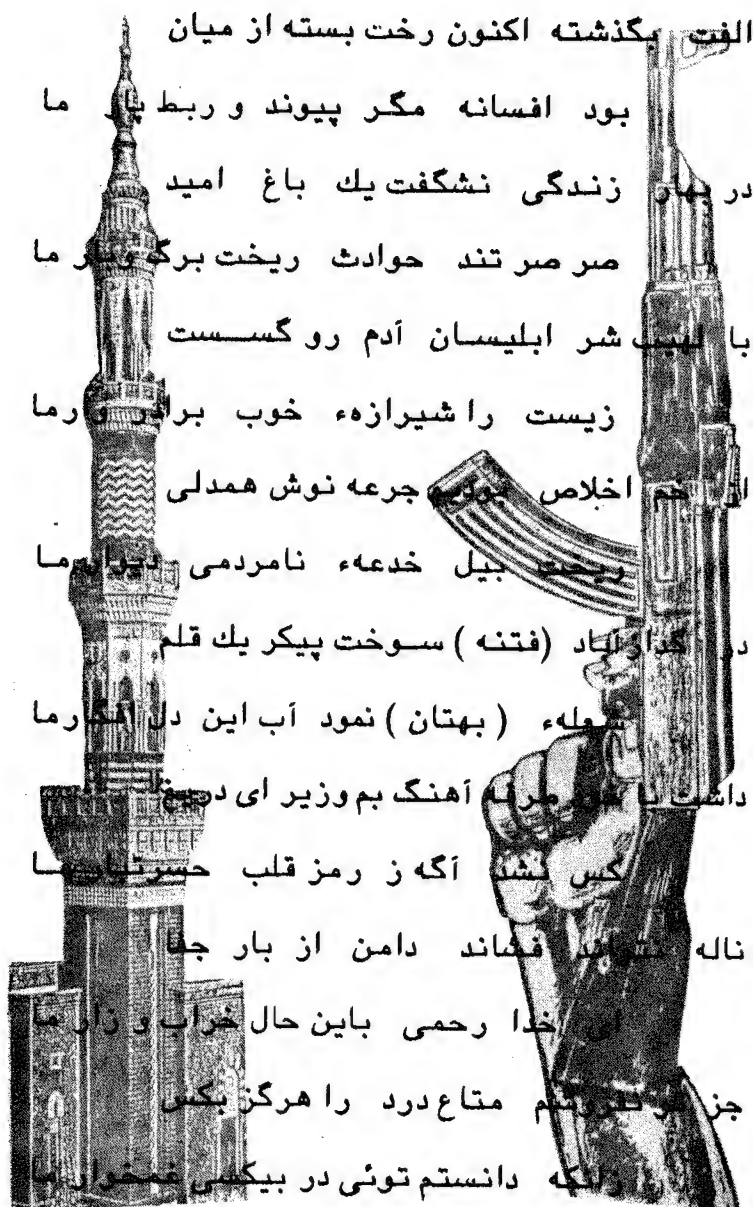 الفت بگذشته اکنون رخت بسته از میان
بود افسانه مگر پیوند و ربط پار ما
در بهار زندگی نشگفت يك باغ امید
صر صر تند حوادث ریخت برگ وبار ما
با لهیب شر ابلیسان آدم رو گســست
زیست را شیرازهء خوب برادر وارما
از خم اخلاص بودیم جرعه نوش همدلی
ریخت بیل خدعهء نامردمی دیوار ما
در گدازآباد (فتنه) سـوخت پیکر يك قلم
شعلهء (بهتان) نمود آب این دل افگارما
داشت با خود هرنه آهنگ بم وزیر ای دریغ
کس نشد آگه ز رمز قلب حسرتبار مـا
ناله نتواند فشاند دامن از بار جفا
ای خدا رحمی باین حال خراب و زار ما
جز نفروشم متاع درد را هرگز بکس
زانکه دانستم توئی در بیکسی غمخوار ما